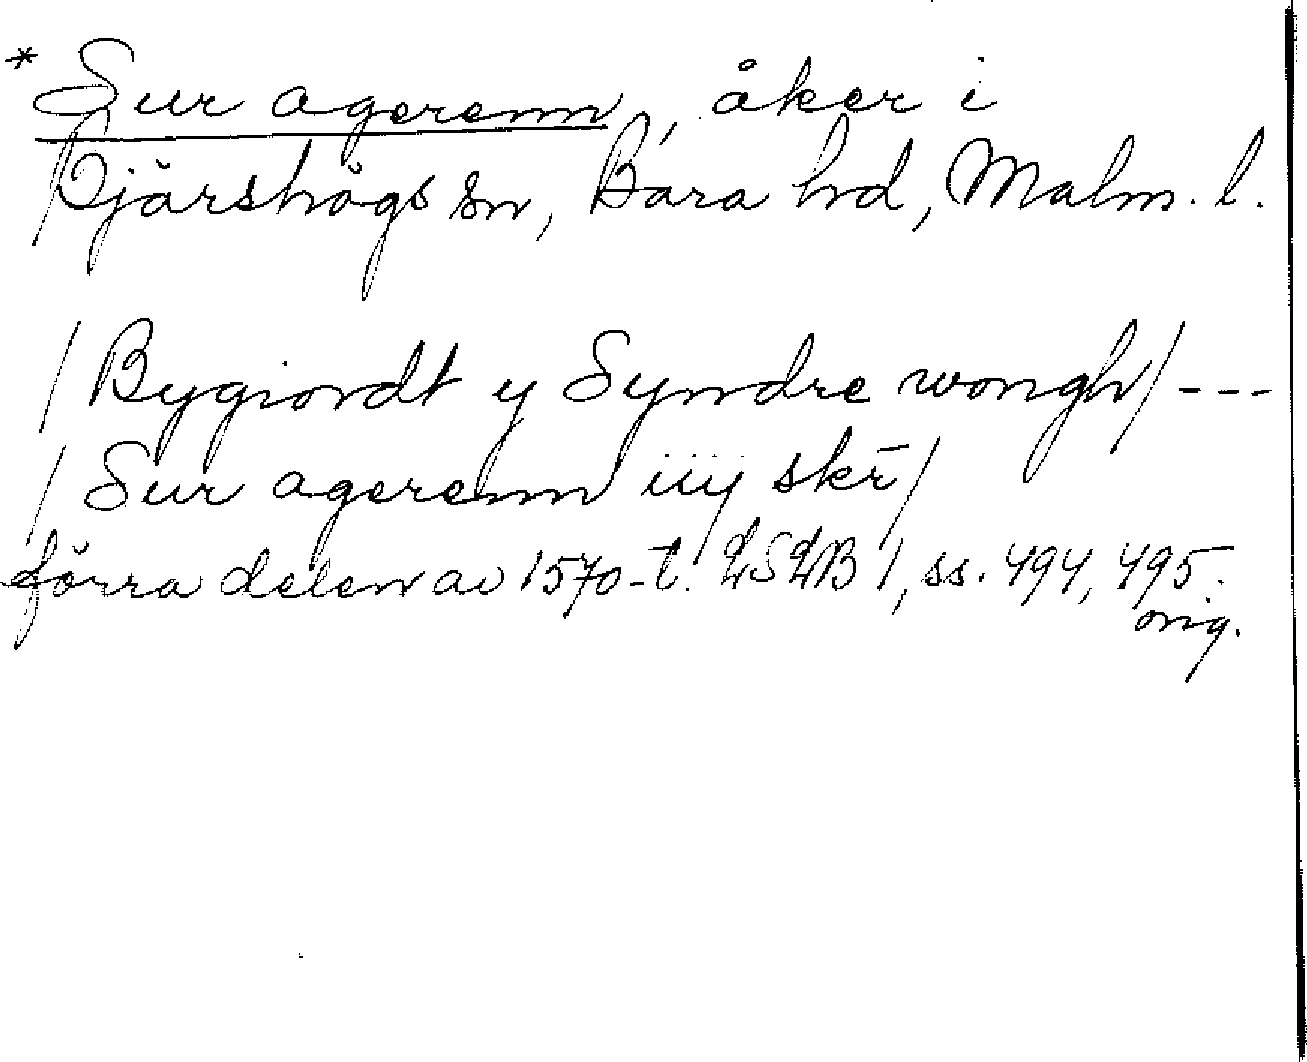 * Sur agerenn, åker i
Bjärshögs sn, Bara hd, Malm. l.
/ Bygiondt y Syndre wongh / ---
/ Sur agerenn iiij skr̄ /
förra delen av 1570-t. LSLB 1, ss. 494, 495.
orig.